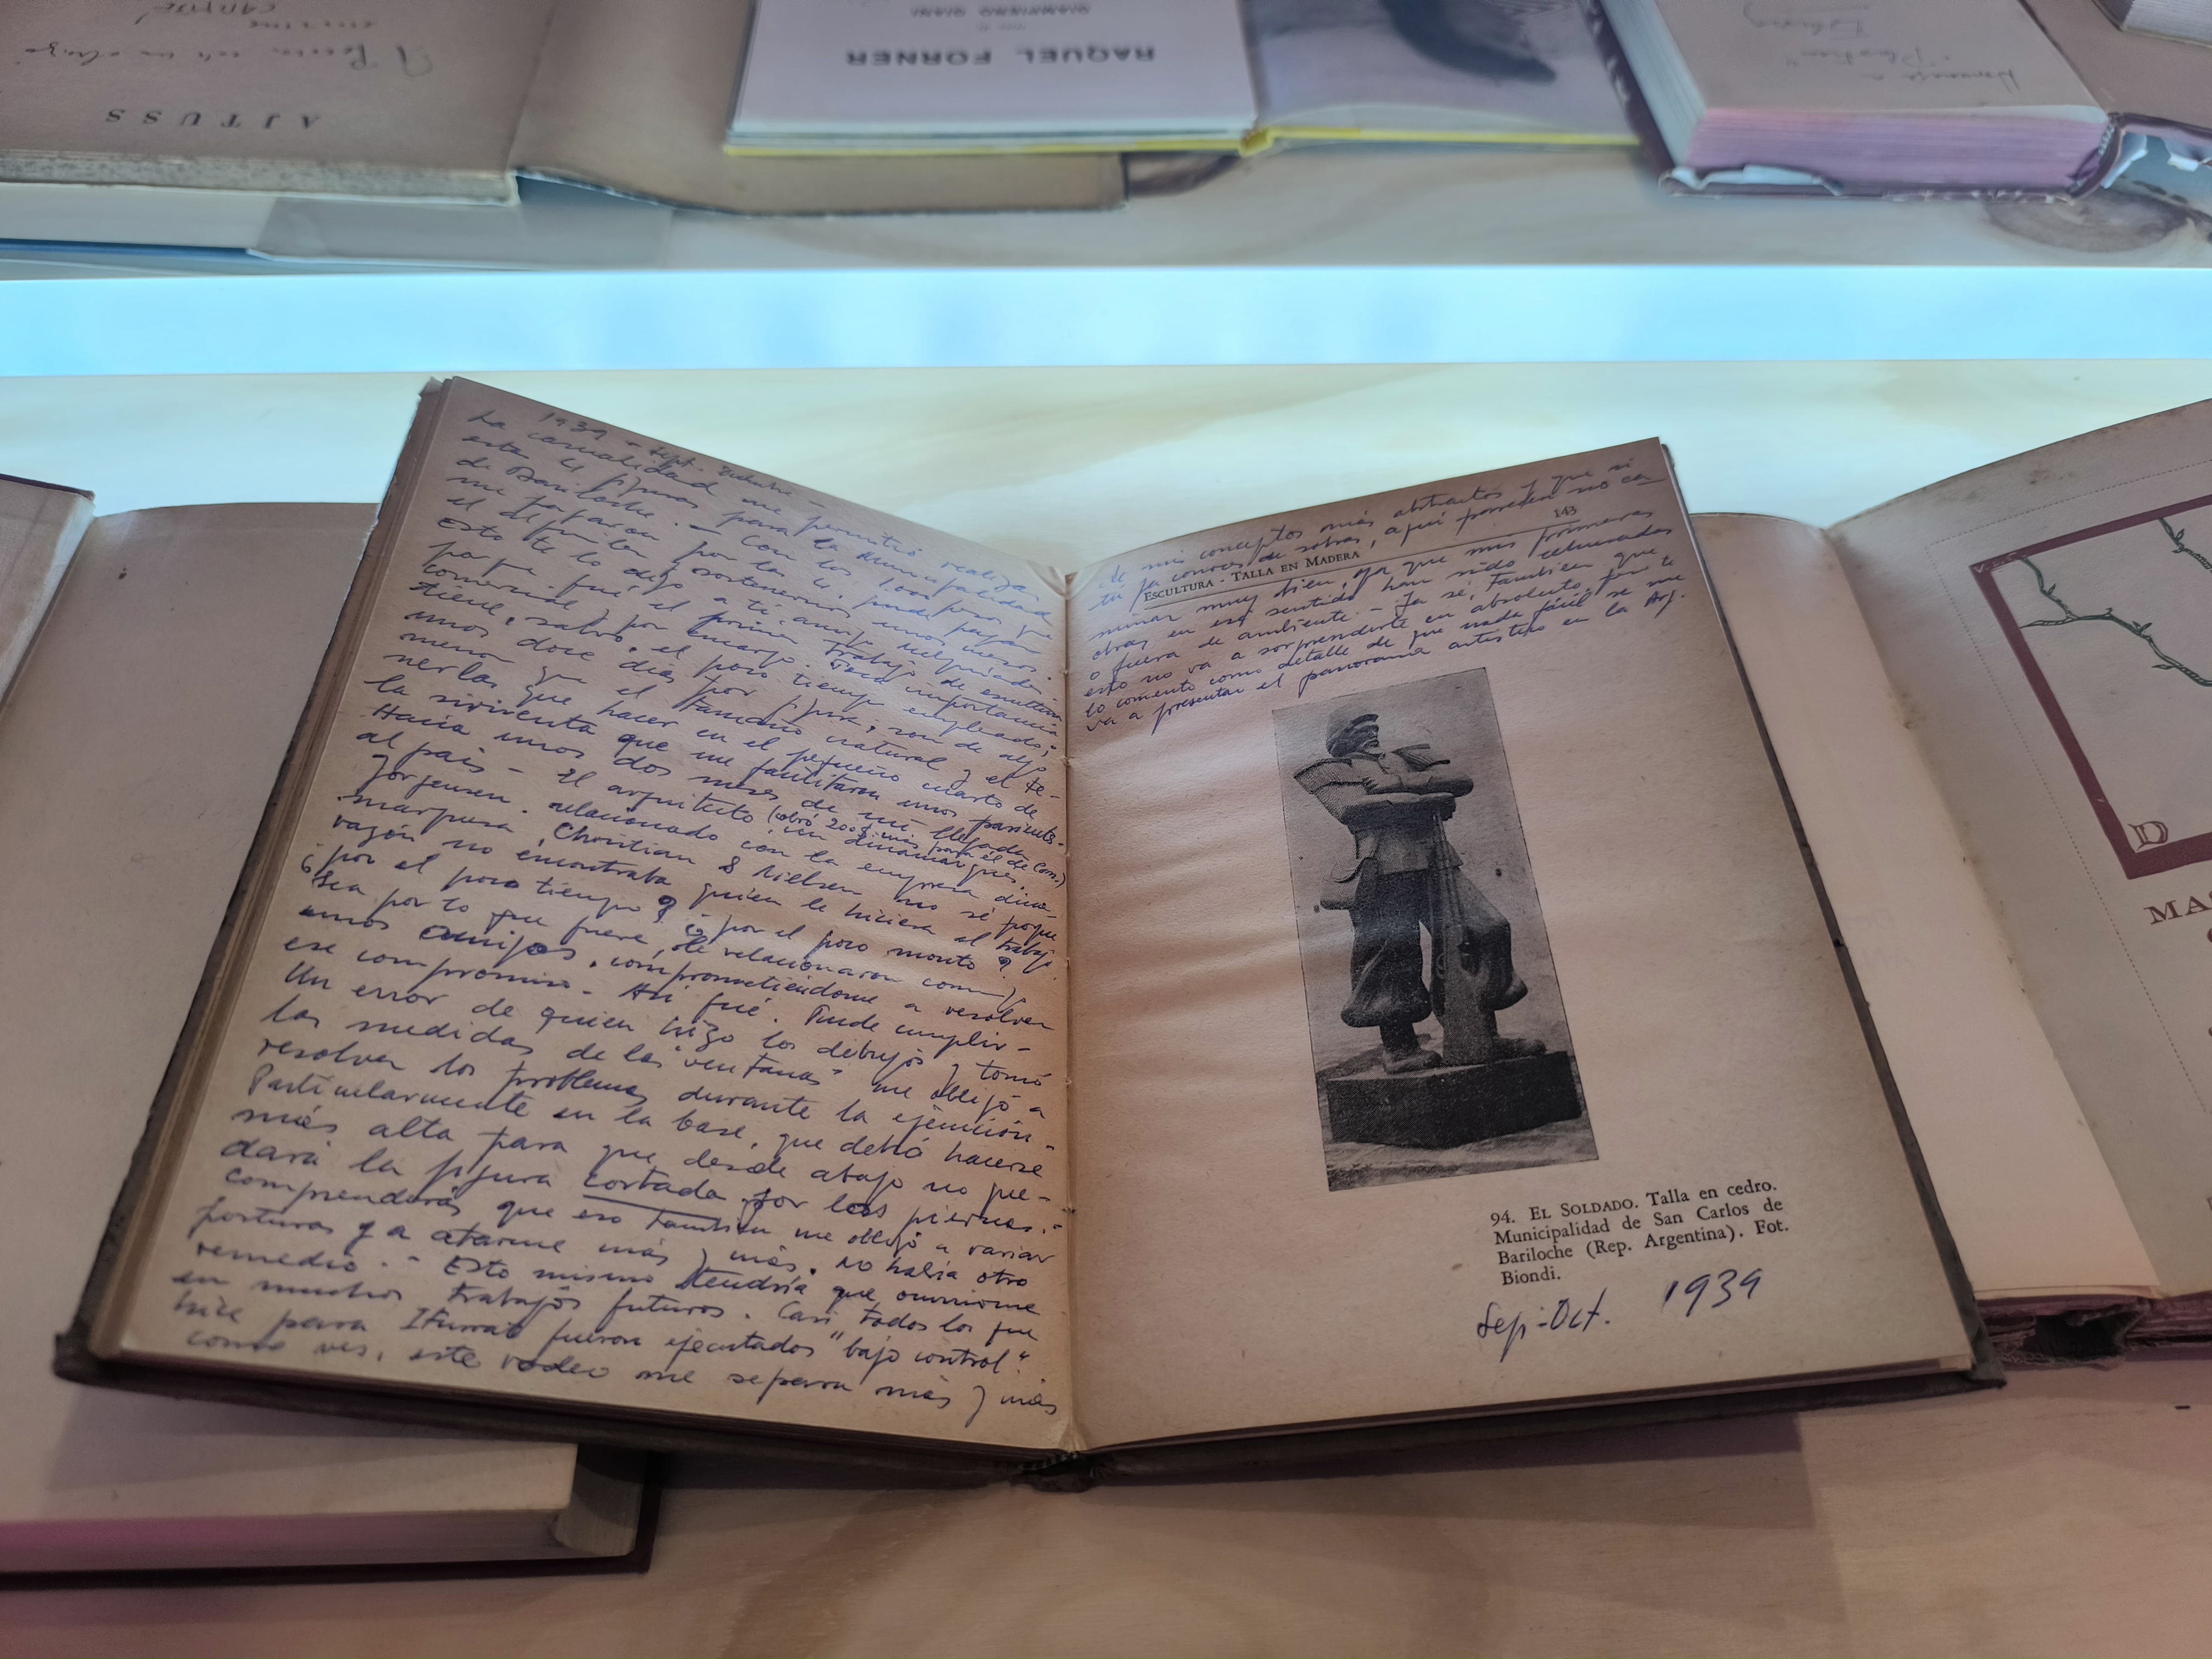 A Perera con un abrazo
AJTUSS
RAQUEL FORNER
Homenaje a
"Plástica"
1939 - Sept. Octubre -
La casualidad me permitió realizar
estas 4 figuras para la Municipalidad
de Bariloche. - Con los 1.000 pesos que
me pagaron por las 4, pude pagar
el alquiler y sostenernos unos meses.
Esto te lo digo a ti, amigo
porque fué el primer trabajo de escultura
comercial y por encargo. Poca importancia
tiene, salvo el poco tiempo empleado;
unos doce días por figura; son de algo
menor que el tamaño natural y el te-
nerlas que hacer en el pequeño cuarto de
la vivienda que me facilitaron unos parientes.
Hacía unos dos meses de mi llegada
al país - El arquitecto (cobró 200$ más para él de Com.)
Jorgensen. un dinamarqués,
relacionado con la empresa dina-
marquesa, Christian & Nielsen no sé porque
razón no encontraba quien le hiciera el trabajo
¿por el poco tiempo? ¿o por el poco monto?
Sea por lo que fuere, le relacionaron conmigo
unos amigos, comprometiéndome a resolver
ese compromiso - Así fué. Pude cumplir -
Un error de quien hizo los dibujos y tomó
las medidas de las "ventanas" me obligó a
resolver los problemas durante la ejecución -
Particularmente en la base, que debió hacerse
más alta para que desde abajo no que-
dará la figura cortada por las piernas. -
comprenderás que eso también me obligó a variar
posturas y a atarme más y más. No había otro
remedio. - Esto mismo tendría que ocurrirme
en muchos trabajos futuros. Casi todos los que
hice para Iturrat fueron ejecutados "bajo control".
como ves, este rodeo me separa más y más
de mis conceptos más abstractos y que si
tu ya conoces de sobras, aquí parecen no ca-
143
ESCULTURA - TALLA EN MADERA
minar muy bien, ya que mis primeras
obras en ese sentido han sido
o fuera de ambiente - Ya sé, también que
esto no va a sorprenderte en absoluto, pero te
lo comento como detalle de que nada fácil se me
va a presentar el panorama artístico en la Arg.
94. EL SOLDADO. Talla en cedro.
Municipalidad de San Carlos de
Bariloche (Rep. Argentina). Fot.
Biondi.
Sep-Oct. 1939
D
MA